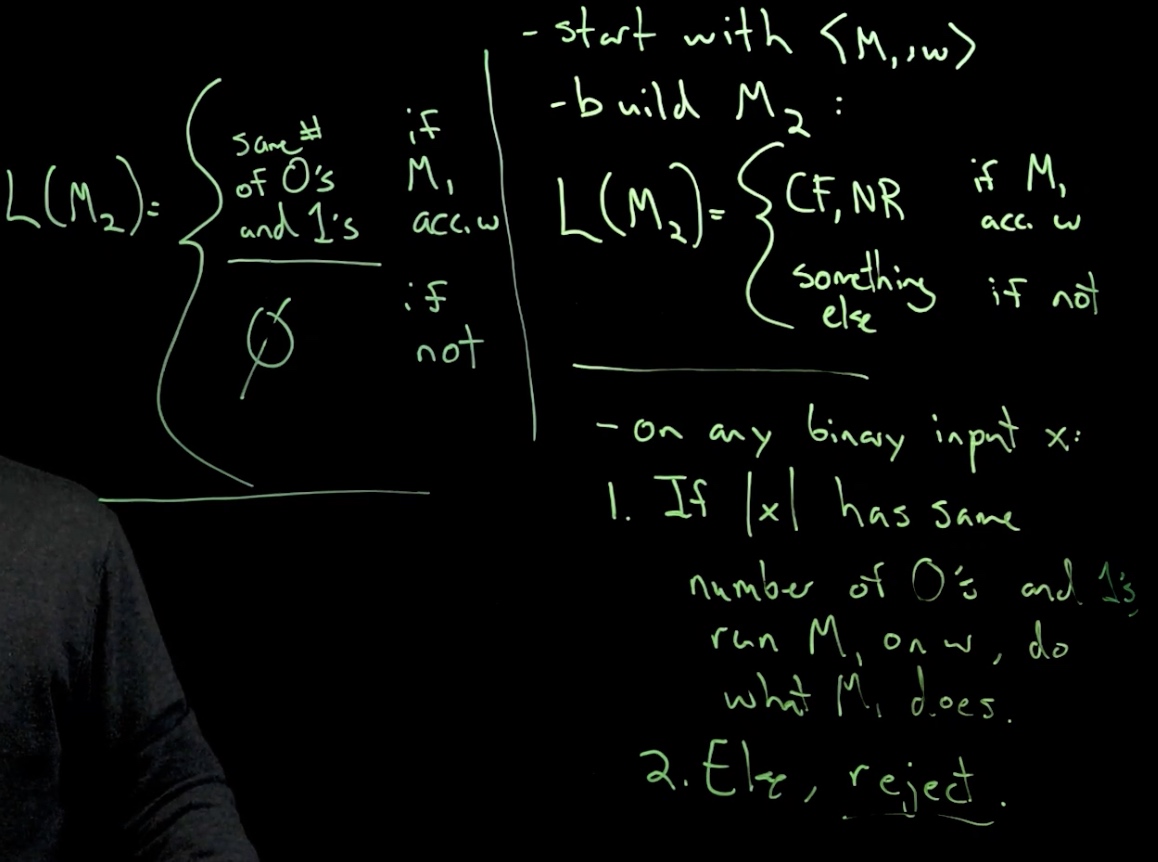 L(M₂)= {
same # if
of 0's M₁
and 1's acc. w
∅ if
not
- start with ⟨M₁,w⟩
- build M₂ :
L(M₂)= { CF, NR if M₁
acc. w
something if not
else
- on any binary input x:
1. If |x| has same
number of 0's and 1's,
run M₁ on w, do
what M₁ does.
2. Else, reject.